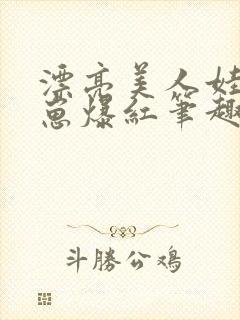 漂亮美人娃
崽爆紅筆趣
斗勝公鸡